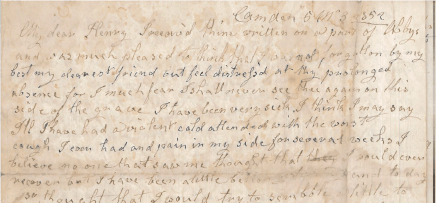 Camden 5 Mo 3 1852
My dear Henry I received thine written on a part of Abbys
and was much pleased to think that I was not forgotten by my
best my dearest friend but feel distress'd at thy prolonged
absence for I much fear I shall never see thee again on this
side of the grave. I have been very sick I think I may say
Ill I have had a violent cold attended with the worst
cough I ever had and pain in my side for several weeks I
believe no one that saw me thought that I would ever
recover and I have been a little and to day
thought that I would try to scribble little to